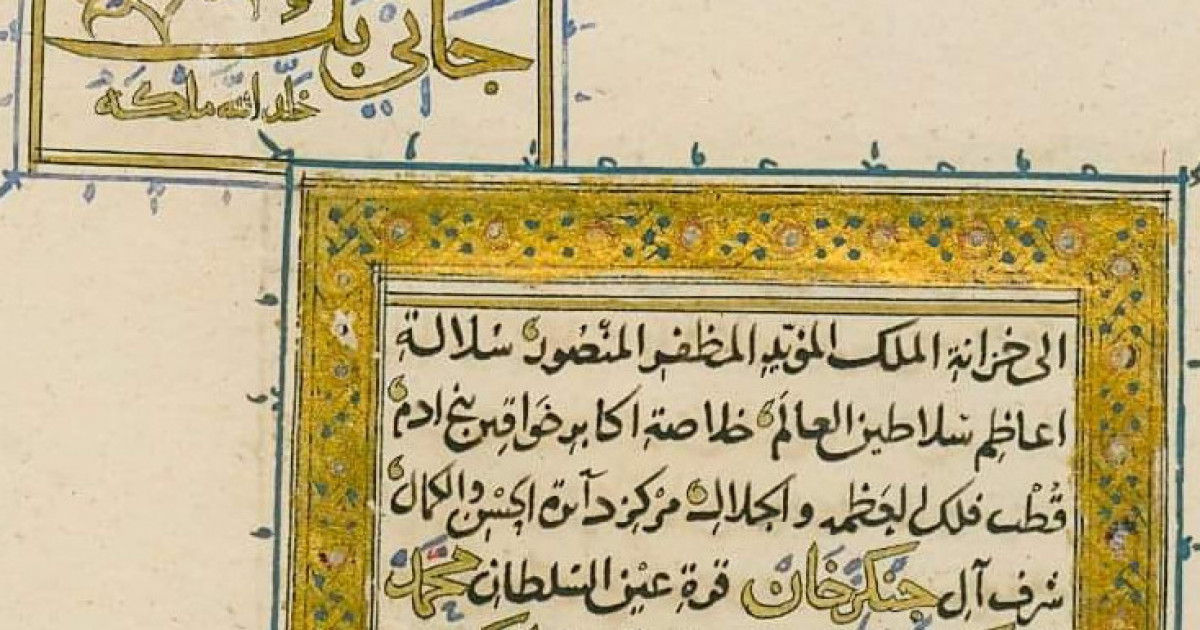 جاني بك
خلد الله ملكه
الى خزانة الملك المؤيد المظفر المنصور سلالة
اعاظم سلاطين العالم خلاصة اكابر خواقين بني ادم
قطب فلك العظمه والجلال مركز دآئرة الحسن والكمال
شرف آل جنكزخان قرة عين السلطان محمد